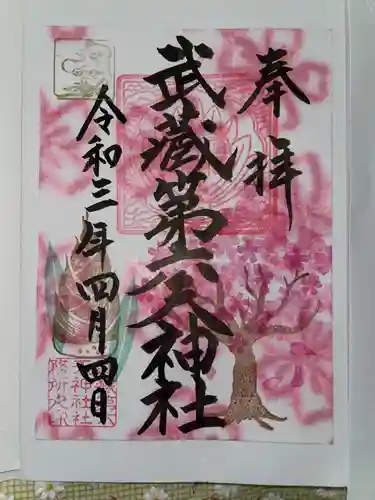 奉拝
武蔵第六天神社
令和三年四月四日